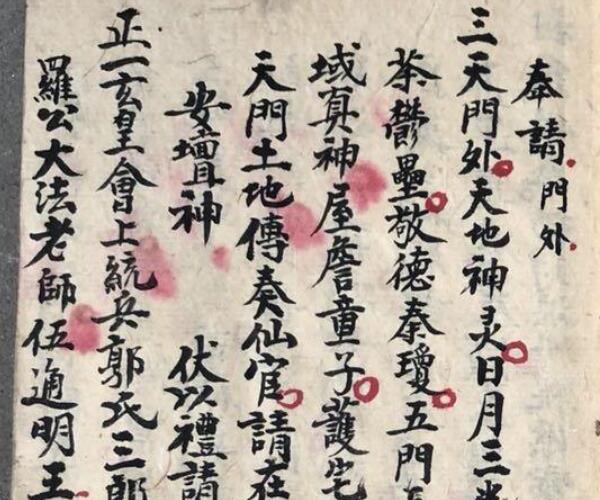 奉請門外
三天門外天地神灵日月三
荼鬱壘敬德秦瓊五門
域真神屋詹童子護宅
天門土地傳奏仙官請在
安壇神 伏以禮請
正一玄皇會上統兵郭氏三郎
羅公大法老師伍通明王